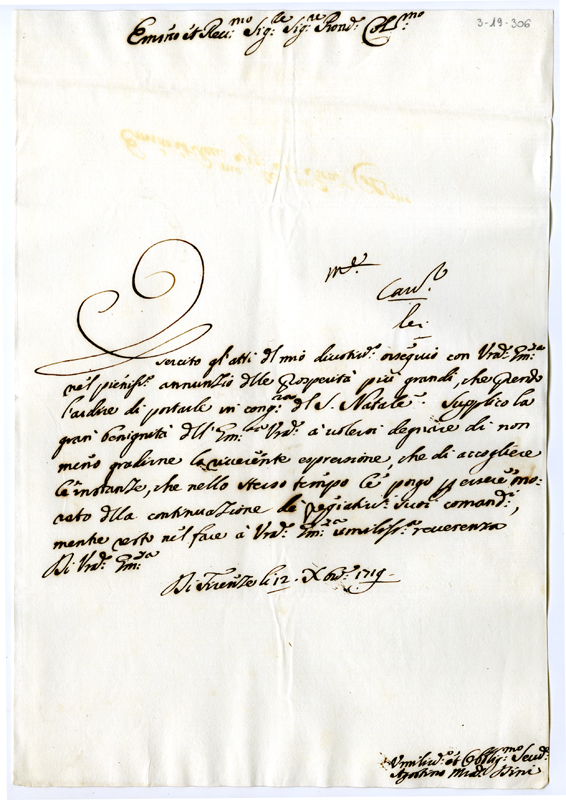 3-19-306
Emiño et Reu:mo Sig:re Sig:re Pron: Col:mo
M:e
Card:
lei
Esercito gl'atti del mio diuotis:o ossequio con Vra: Em:a
nel pienis:o annunzio delle prosperità più grandi, che prendo
l'ardire di portarle in cong:ra del S. Natale. Supplico la
gran benignità dell'Em:a Vra: à volersi degnare di non
meno gradirne la riuerente espressione, che di accogliere
le instanze, che nello stesso tempo le pongo p essere ono-
rato della continuazione de' pregiatis: suoi comand:i,
mentre resto nel fare à Vra: Em:a umiliss:a reuerenza
Di Vra: Em:a
Di Firenze li 12. Xbre: 1719.
Vmilis:o et Obblig:mo Seru:e
Agostino Bini